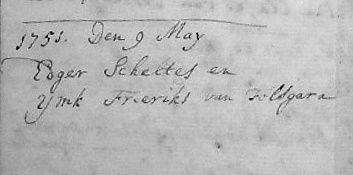 1751. Den 9 May
Edger Scheltes en
Ymk Freriks van Folsgara